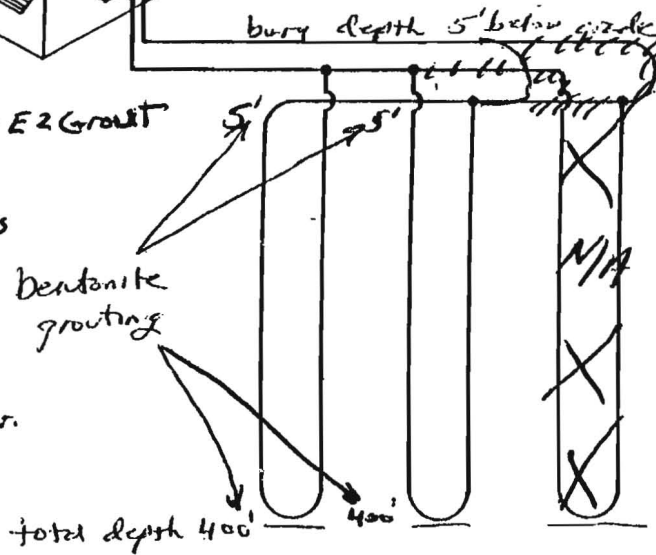 bury depth 5' below grade
EZ Grout 5' 5'
s
bentonite
grouting
N/A
r.
total depth 400' 400'